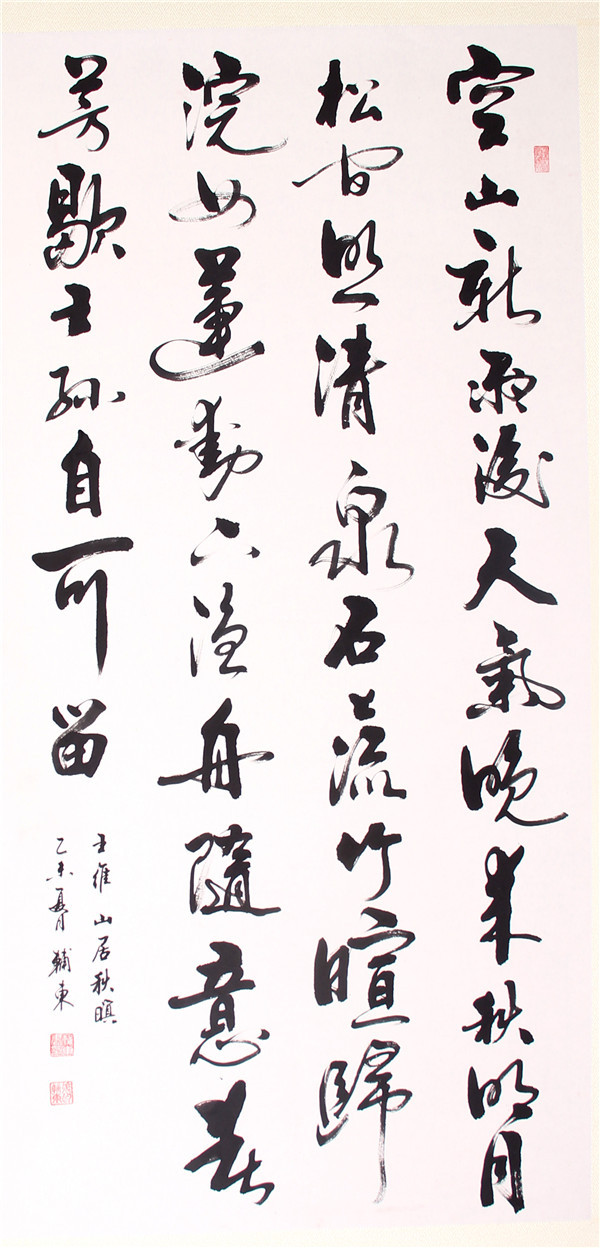 空山新雨後天氣晚來秋明月
松間照清泉石上流竹暄歸
浣女蓮動下漁舟隨意春
芳歇王孫自可留
王維山居秋暝
乙未夏月輔東